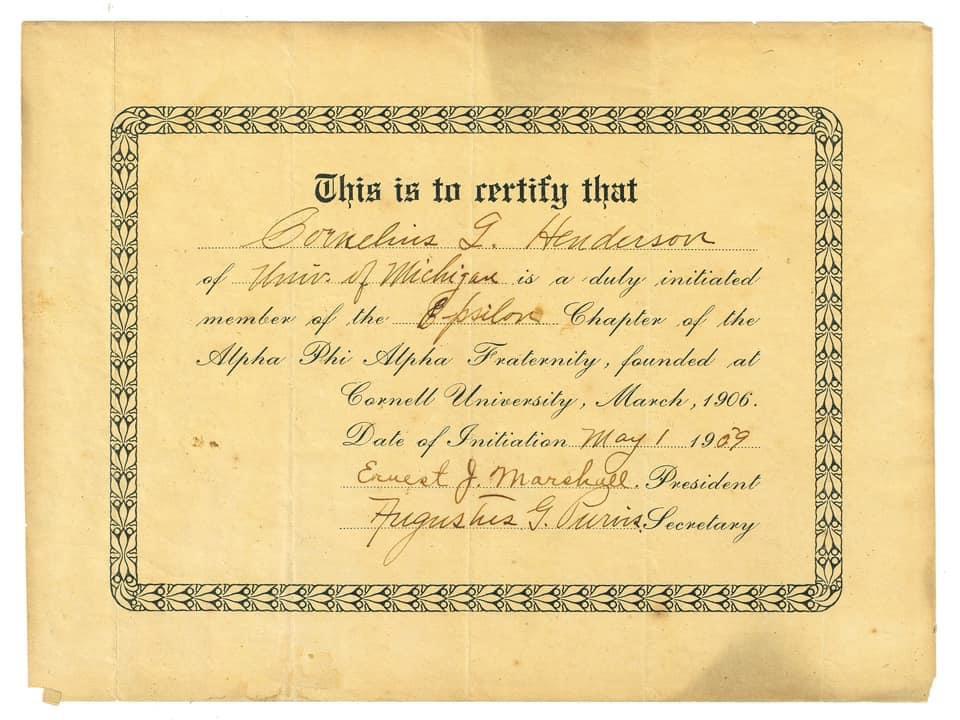 This is to certify that
Cornelius G. Henderson
of Univ. of Michigan is a duly initiated
member of the Epsilon Chapter of the
Alpha Phi Alpha Fraternity, founded at
Cornell University, March, 1906.
Date of Initiation May 1 1909
Ernest J. Marshall. President
Augustus G. Purvis Secretary